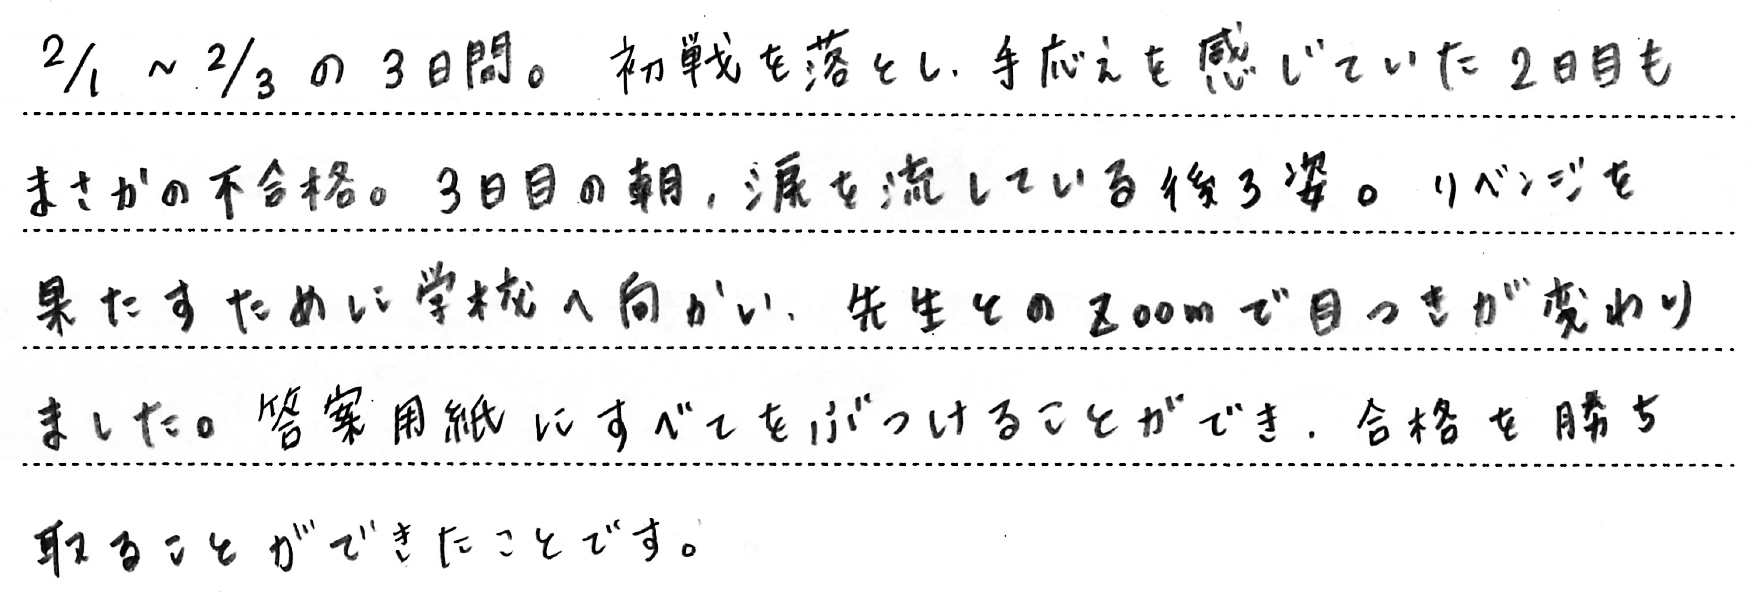 2/1 ~ 2/3 の 3日間。 初戦を落とし、手応えを感じていた2日目も
まさかの不合格。3日目の朝、涙を流している後ろ姿。リベンジを
果たすために学校へ向かい、先生とのZoomで目つきが変わり
ました。答案用紙にすべてをぶつけることができ、合格を勝ち
取ることができたことです。